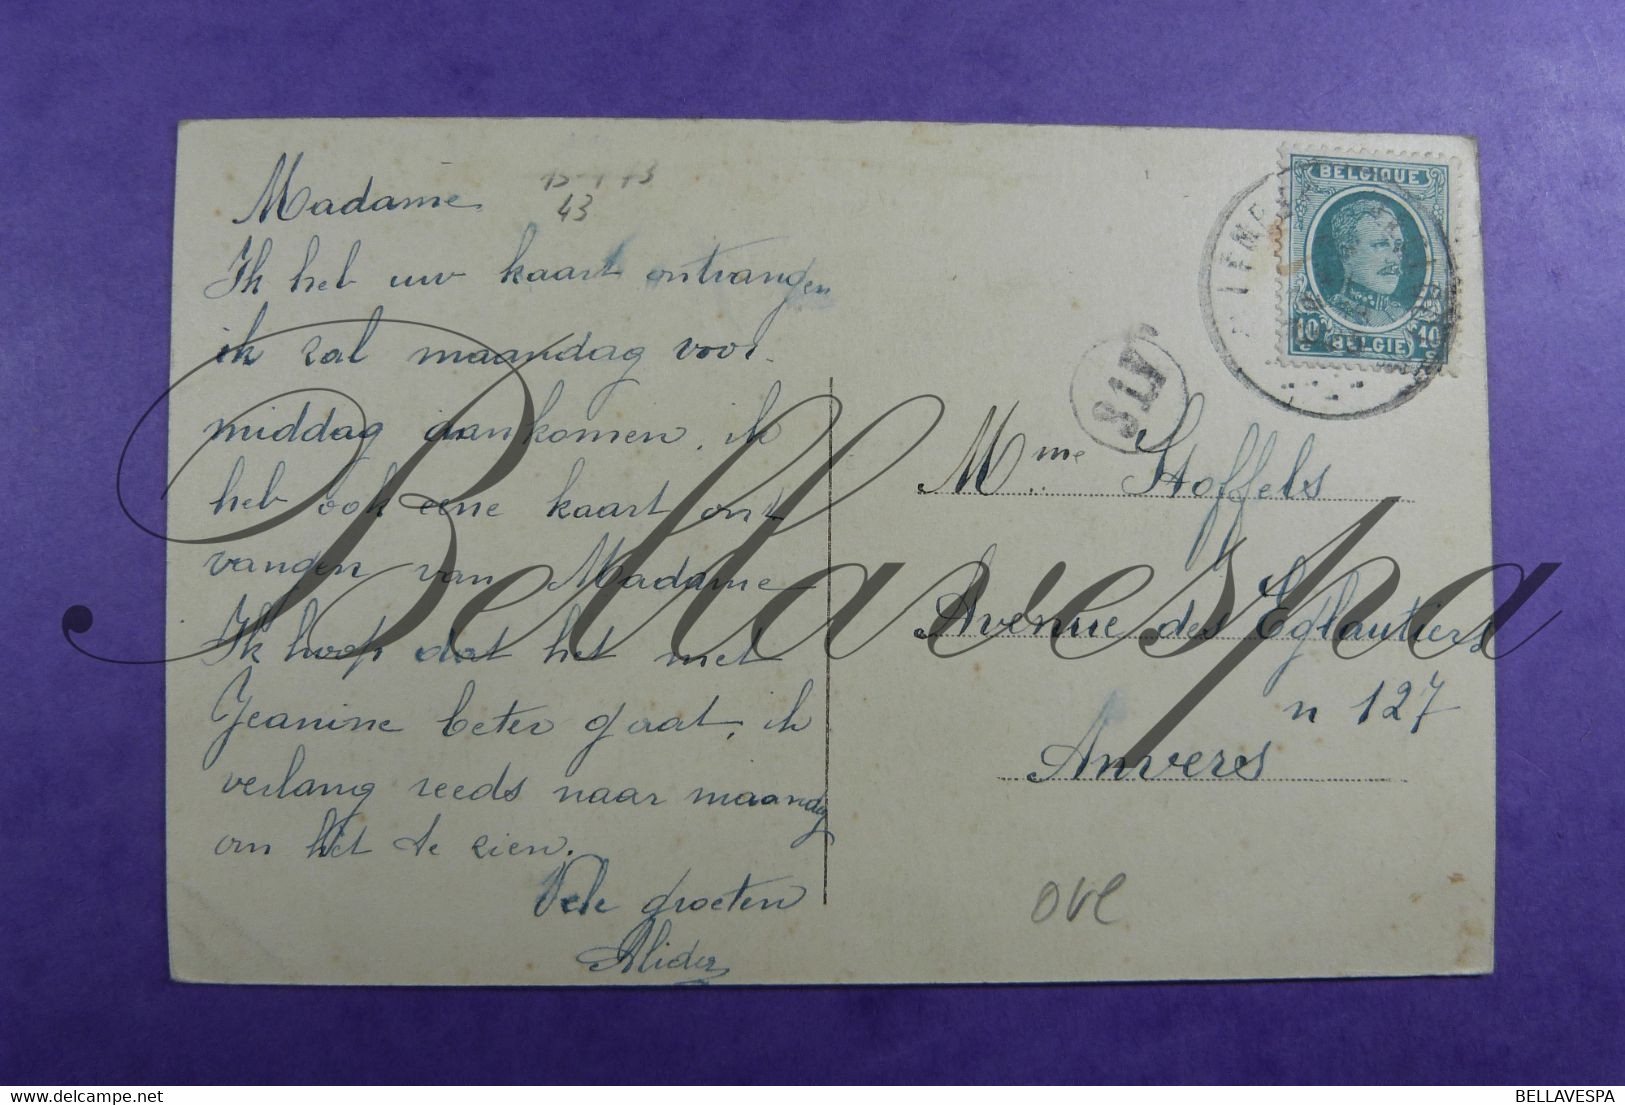 Madame
43
Ik heb uw kaart ontvangen
ik zal maandag voor
middag aankomen. ik
heb ook eene kaart ont
vangen van Madame
Ik hoop dat het met
Jeanine beter gaat, ik
verlang reeds naar maandag
om het te zien.
Vele groeten
Alida
BELGIQUE
10c 10c
BELGIE
Mme Stoffels
Avenue des Eglantiers
n 127
Anvers
OVL
Bellavespa
BELLAVESPA